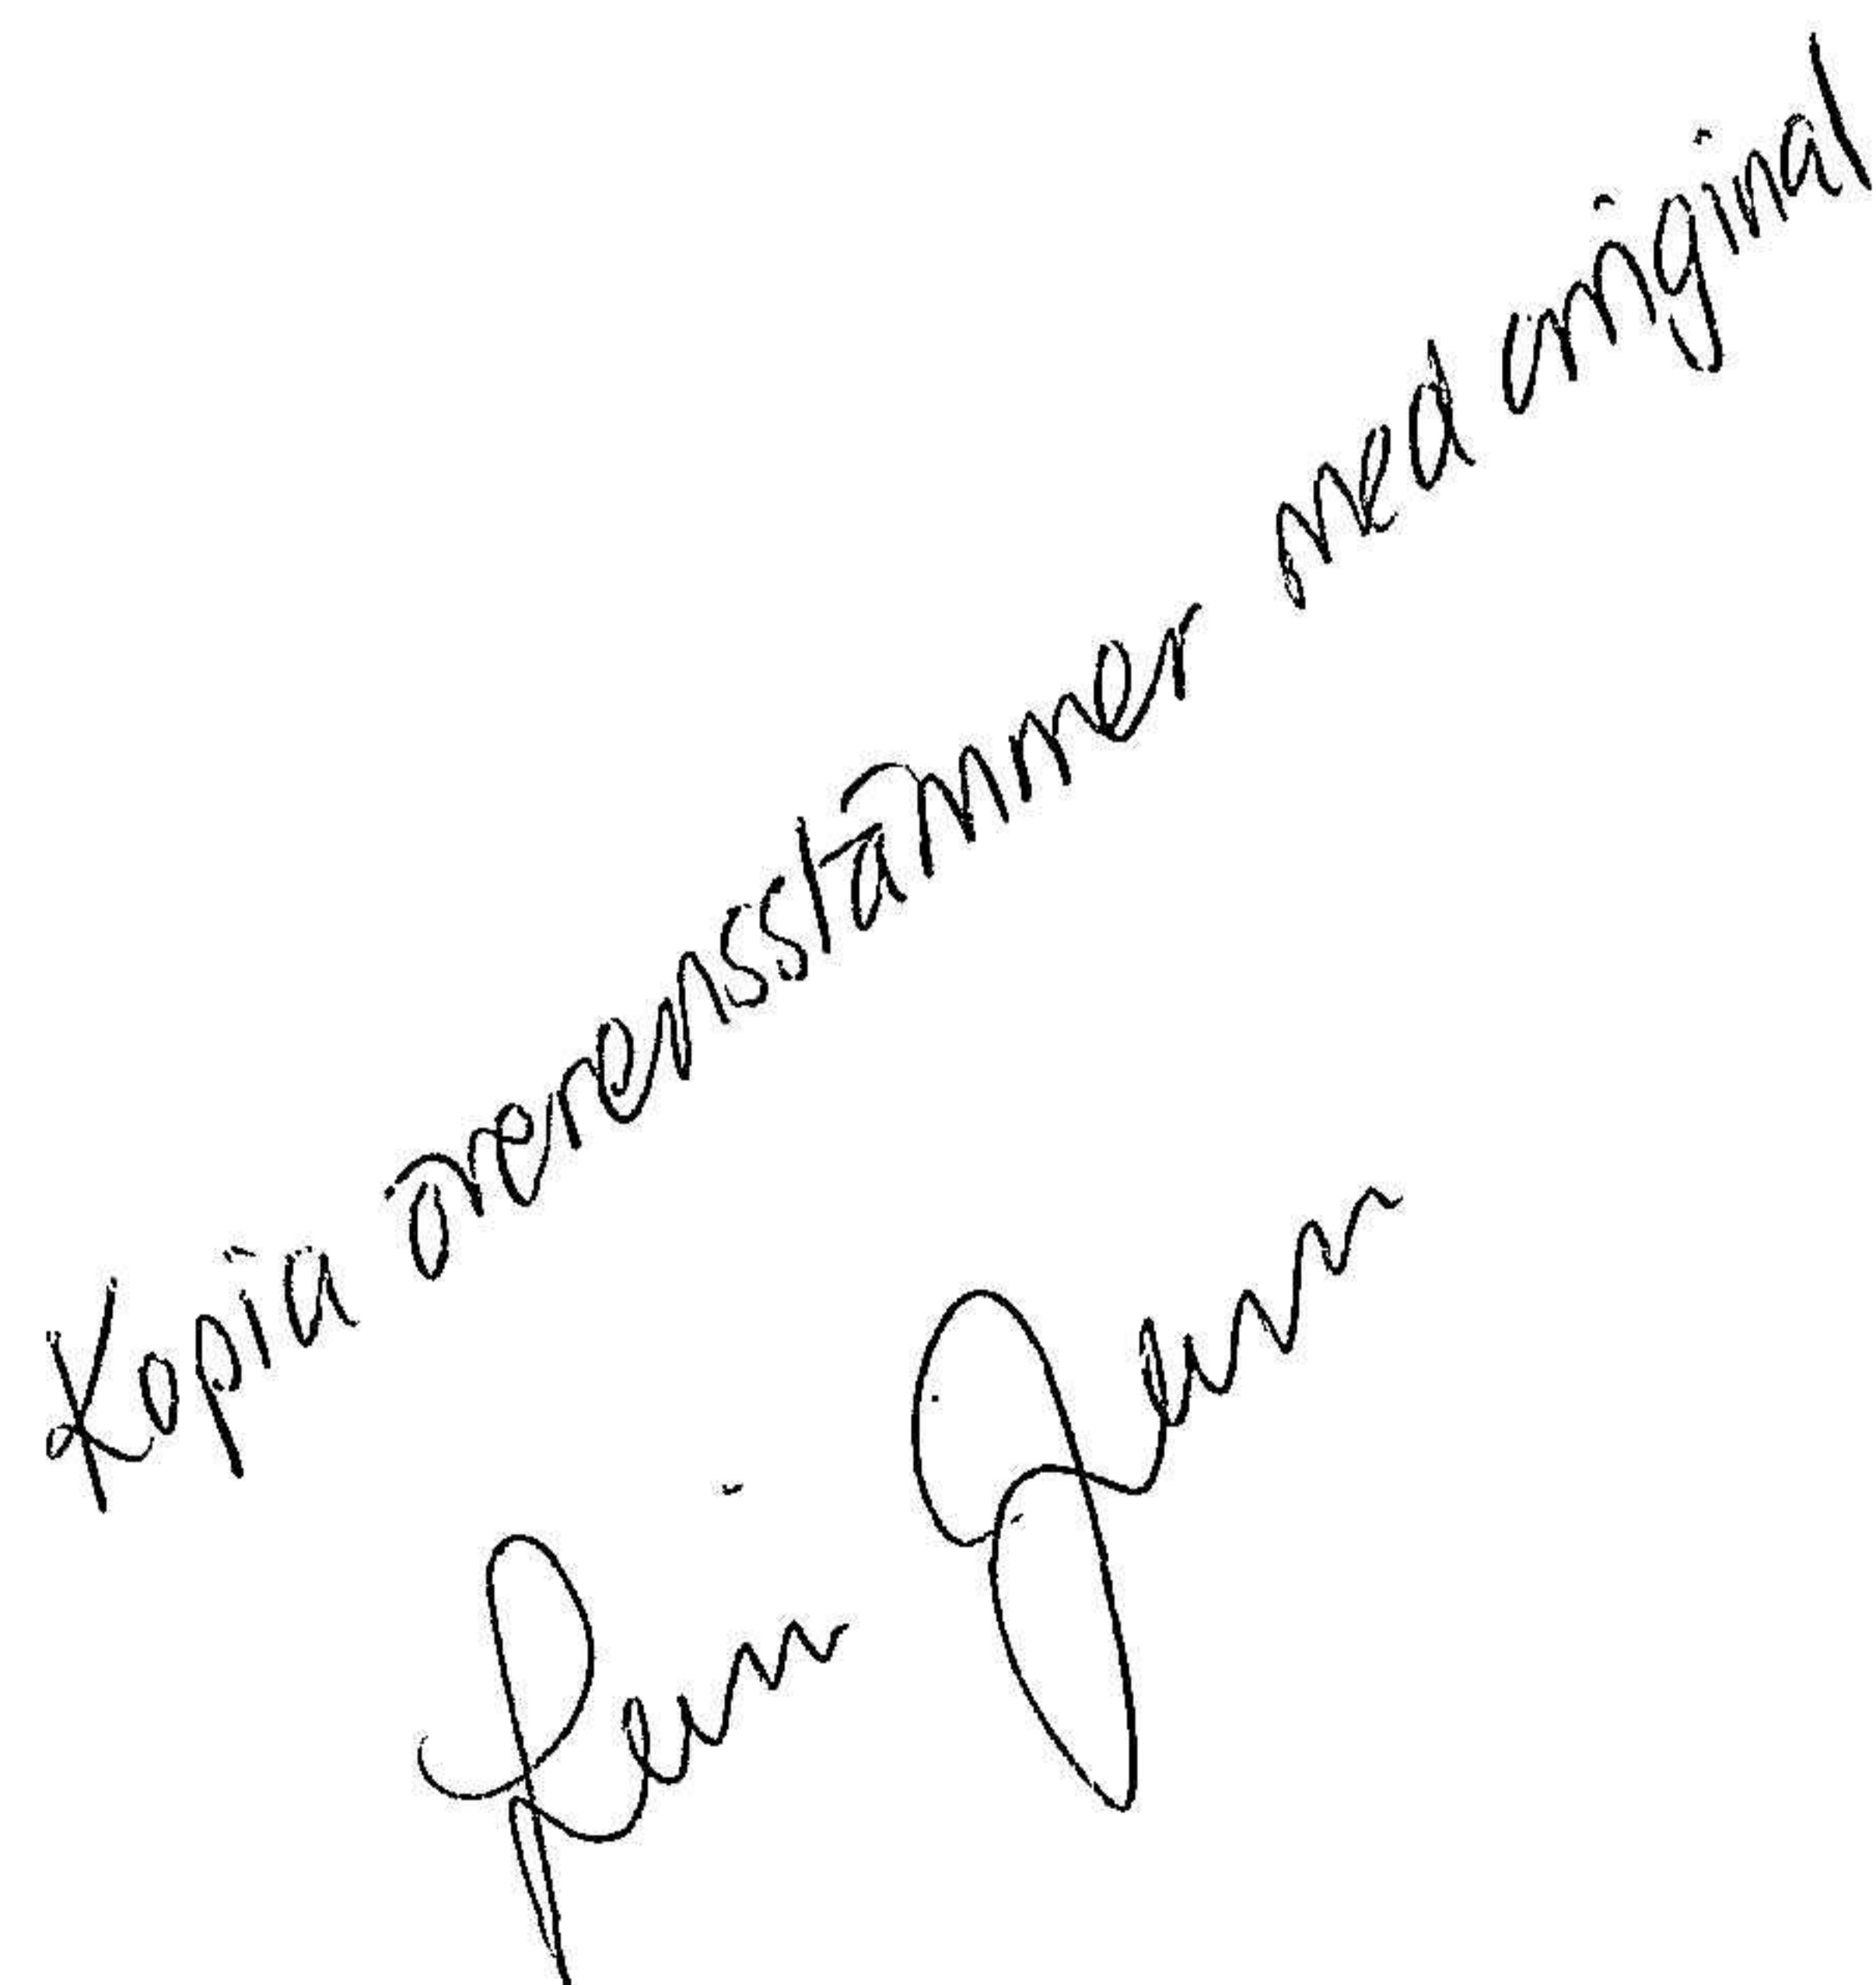 Kopia överensstämmer med original